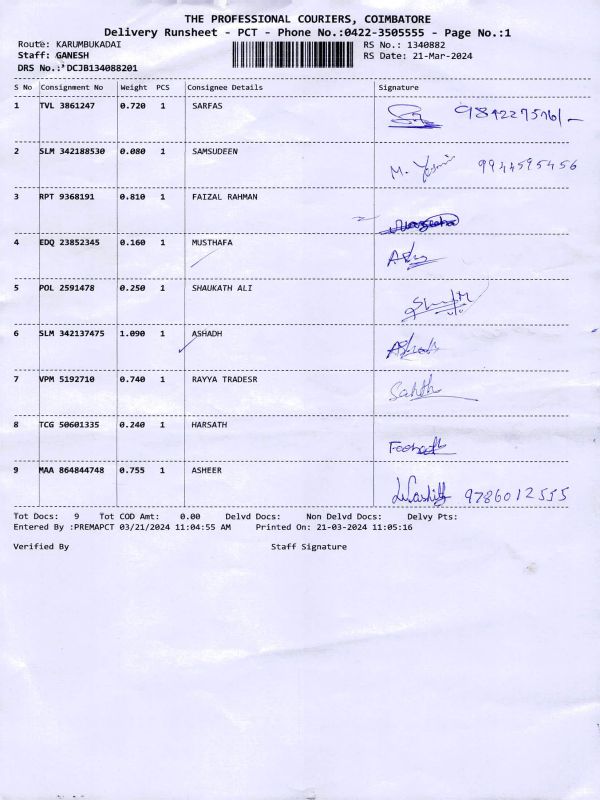 THE PROFESSIONAL COURIERS, COIMBATORE
Delivery Runsheet - PCT - Phone No.:0422-3505555 - Page No.:1
Route: KARUMBUKADAI RS No.: 1340882
Staff: GANESH RS Date: 21-Mar-2024
DRS No.: DCJB134088201
S No Consignment No Weight PCS Consignee Details Signature
1 TVL 3861247 0.720 1 SARFAS
2 SLM 342188530 0.080 1 SAMSUDEEN 9944595456
3 RPT 9368191 0.810 1 FAIZAL RAHMAN
4 EDQ 23852345 0.160 1 MUSTHAFA
5 POL 2591478 0.250 1 SHAUKATH ALI
6 SLM 342137475 1.090 1 ASHADH
7 VPM 5192710 0.740 1 RAYYA TRADESR
8 TCG 50601335 0.240 1 HARSATH
9 MAA 864844748 0.755 1 ASHEER 9786012555
Tot Docs: 9 Tot COD Amt: 0.00 Delvd Docs: Non Delvd Docs: Delvy Pts:
Entered By :PREMAPCT 03/21/2024 11:04:55 AM Printed On: 21-03-2024 11:05:16
Verified By Staff Signature